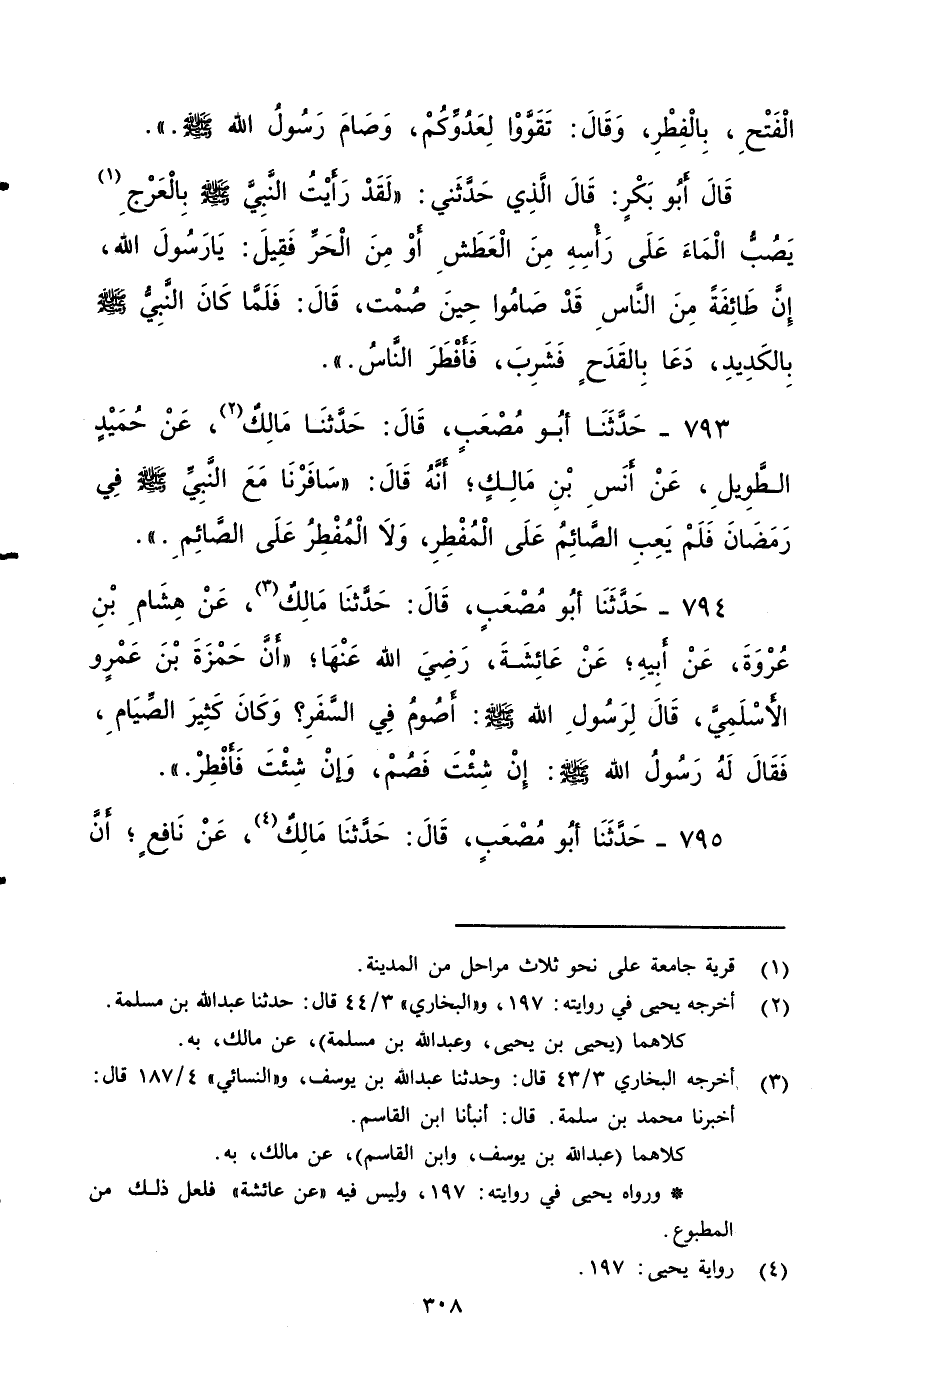 الْفَتْحِ ، بِالْفِطْرِ، وَقَالَ: تَقَوَّوْا لِعَدُوِّكُمْ، وَصَامَ رَسُولُ الله ﷺ.».
قَالَ أَبُو بَكْرٍ: قَالَ الَّذِي حَدَّثَنِي: «لَقَدْ رَأَيْتُ النَّبِيَّ ﷺ بِالْعَرْجِ(١)
يَصُبُّ الْمَاءَ عَلَى رَأْسِهِ مِنَ الْعَطَشِ أَوْ مِنَ الْحَرِّ فَقِيلَ: يَارَسُولَ الله،
إِنَّ طَائِفَةً مِنَ النَّاسِ قَدْ صَامُوا حِينَ صُمْت، قَالَ: فَلَمَّا كَانَ النَّبِيُّ ﷺ
بِالكَدِيدِ، دَعَا بِالقَدَحٍ فَشَرِبَ، فَأَفْطَرَ النَّاسُ.».
٧٩٣ ـ حَدَّثَنَا أبُو مُصْعَبٍ، قَالَ: حَدَّثنَا مَالِكٌ(٢)، عَنْ حُمَيْدٍ
الطَّوِيلِ، عَنْ أَنَسِ بْنِ مَالِكٍ؛ أَنَّهُ قَالَ: «سَافَرْنَا مَعَ النَّبِيِّ ﷺ فِي
رَمَضَانَ فَلَمْ يَعِبِ الصَّائِمُ عَلَى الْمُفْطِرِ، وَلَا الْمُفْطِرُ عَلَى الصَّائِمِ.».
٧٩٤ ـ حَدَّثَنَا أبُو مُصْعَبٍ، قَالَ: حَدَّثَنَا مَالِكٌ(٣)، عَنْ هِشَامِ بْنِ
عُرْوَةَ، عَنْ أَبِيهِ؛ عَنْ عَائِشَةَ، رَضِيَ الله عَنْهَا؛ «أَنَّ حَمْزَةَ بْنَ عَمْرٍو
الأَسْلَمِيَّ، قَالَ لِرَسُولِ الله ﷺ: أَصُومُ فِي السَّفَرِ؟ وَكَانَ كَثِيرَ الصِّيَامِ،
فَقَالَ لَهُ رَسُولُ الله ﷺ: إِنْ شِئْتَ فَصُمْ، وَإنْ شِئْتَ فَأَفْطِرْ.».
٧٩٥ ـ حَدَّثَنَا أبُو مُصْعَبٍ، قَالَ: حَدَّثنَا مَالِكٌ(٤)، عَنْ نَافِعٍ؛ أَنَّ
(١) قرية جامعة على نحو ثلاث مراحل من المدينة.
(٢) أخرجه يحيى في روايته: ١٩٧، و«البخاري» ٤٤/٣ قال: حدثنا عبدالله بن مسلمة.
كلاهما (يحيى بن يحيى، وعبدالله بن مسلمة)، عن مالك، به.
(٣) أخرجه البخاري ٤٣/٣ قال: وحدثنا عبدالله بن يوسف، و«النسائي» ١٨٧/٤ قال:
أخبرنا محمد بن سلمة. قال: أنبأنا ابن القاسم.
كلاهما (عبدالله بن يوسف، وابن القاسم)، عن مالك، به.
* ورواه يحيى في روايته: ١٩٧، وليس فيه «عن عائشة» فلعل ذلك من
المطبوع.
(٤) رواية يحيى: ١٩٧.
٣٠٨